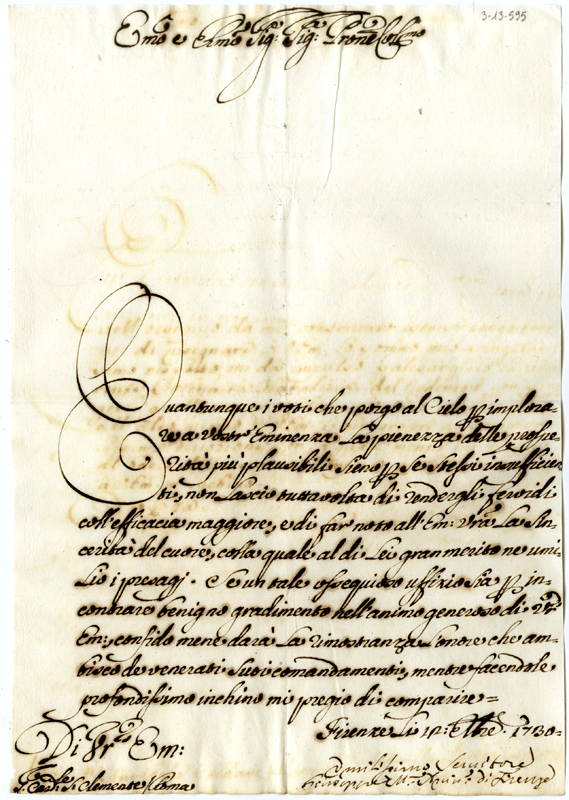 3-13-595
Em.o e Rmo Sig: Sig: Prone Col.mo
Quantunque i voti che porgo al Cielo p implora-
re a Vostr' Eminenza La pienezza delle prospe-
rità più plausibili sieno p se stessi insufficien
ti, non Lascio tuttavolta di rendergli fervidi
coll'efficacia maggiore, e di far noto all'Em: Vra La sin-
cerità del cuore, colla quale al di Lei gran merito ne umi-
lio i presagi. Se un tale ossequioso uffizio sia p in-
contrare benigno gradimento nell'animo generoso di Vr
Em:, confido mene darà La rimostranza L'onore che am-
bisco de venerati suoi comandamenti, mentre facendole
profondissimo inchino mi pregio di comparire=
Firenze Li 1730.
Di Vr.a Em:
S. Clemente Roma
Umilissimo Servitore
Giuseppe Ma di Firenze